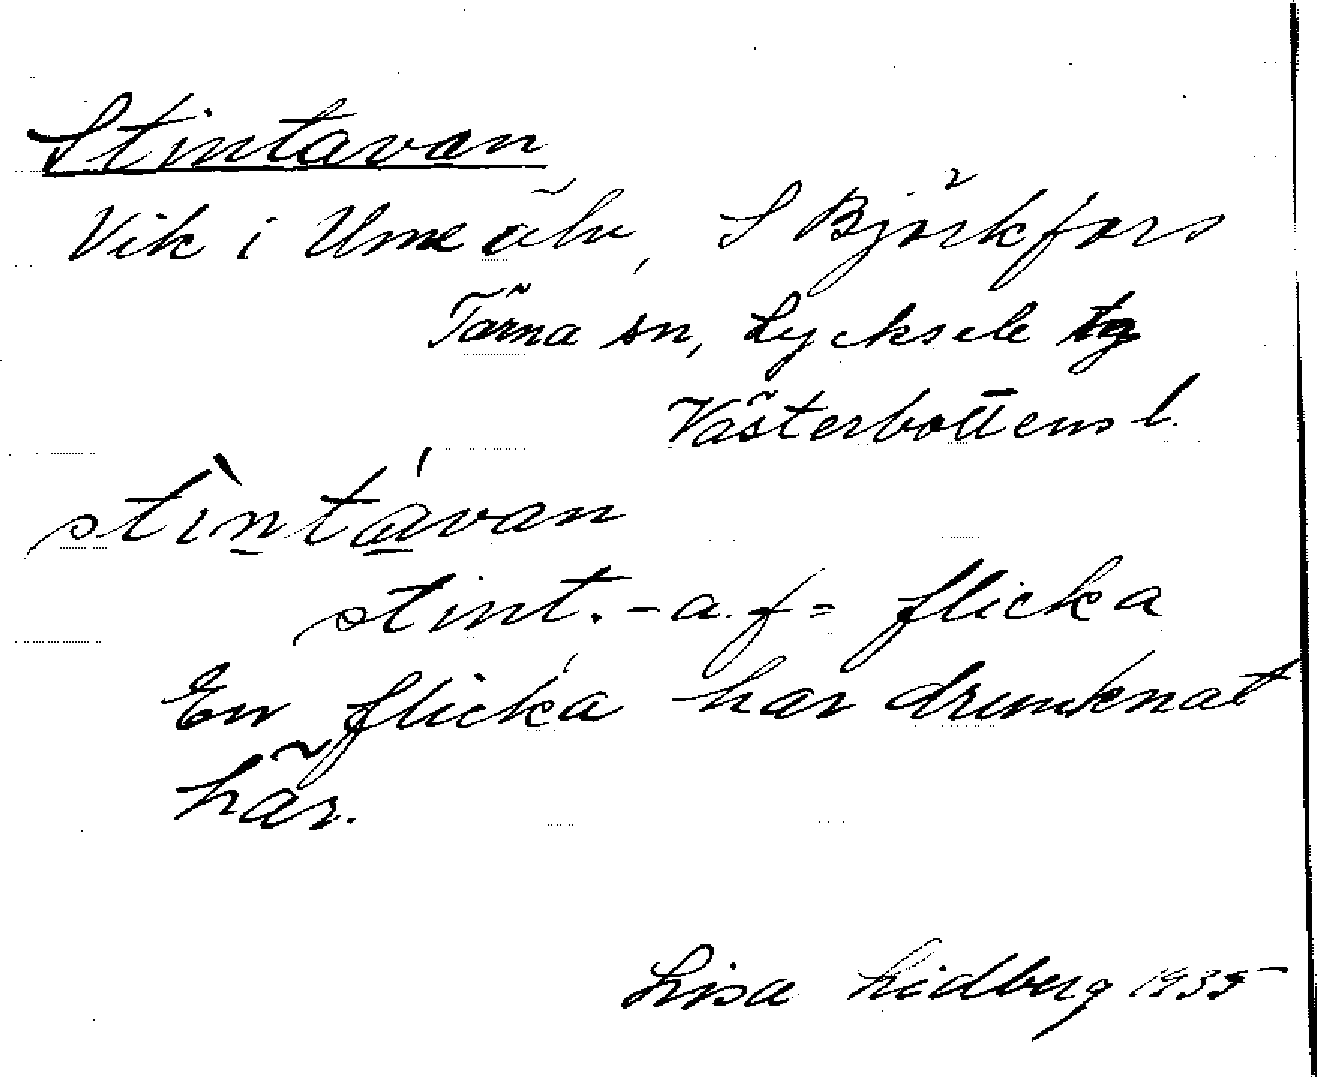 Stintavan
Vik i Ume älv, S Björkfors
Tärna sn, Lycksele tg
Västerbottens l.
stìn̲tá̲van
stint. -a. f = flicka
En flicka har drunknat
här.
Lisa Lidberg 1935